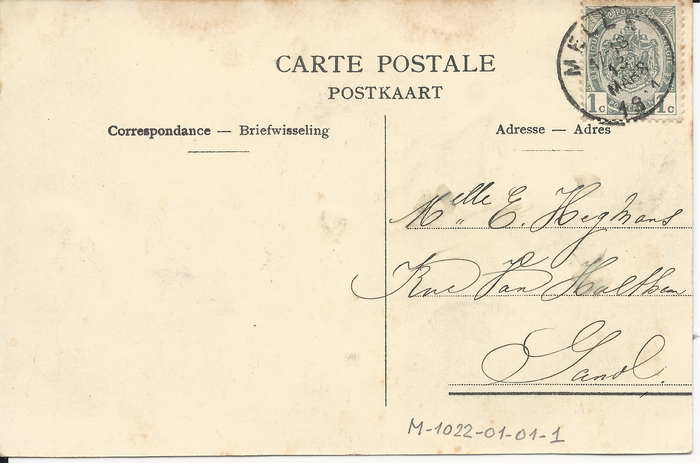 CARTE POSTALE
POSTKAART
Correspondance — Briefwisseling
Adresse — Adres
MELLE
MARS
1c 1c
Melle E. Hegmans
Rue Van Hulthem
Gand.
M-1022-01-01-1